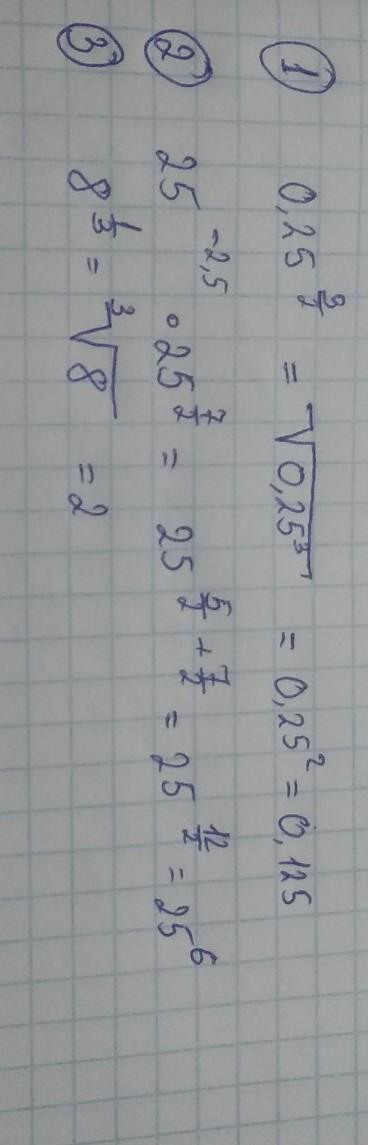 ① 0,25^{3/2} = √(0,25³) = 0,25² = 0,125
② 25^{-2,5} · 25^{7/2} = 25^{5/2 + 7/2} = 25^{12/2} = 25⁶
③ 8^{1/3} = ∛8 = 2